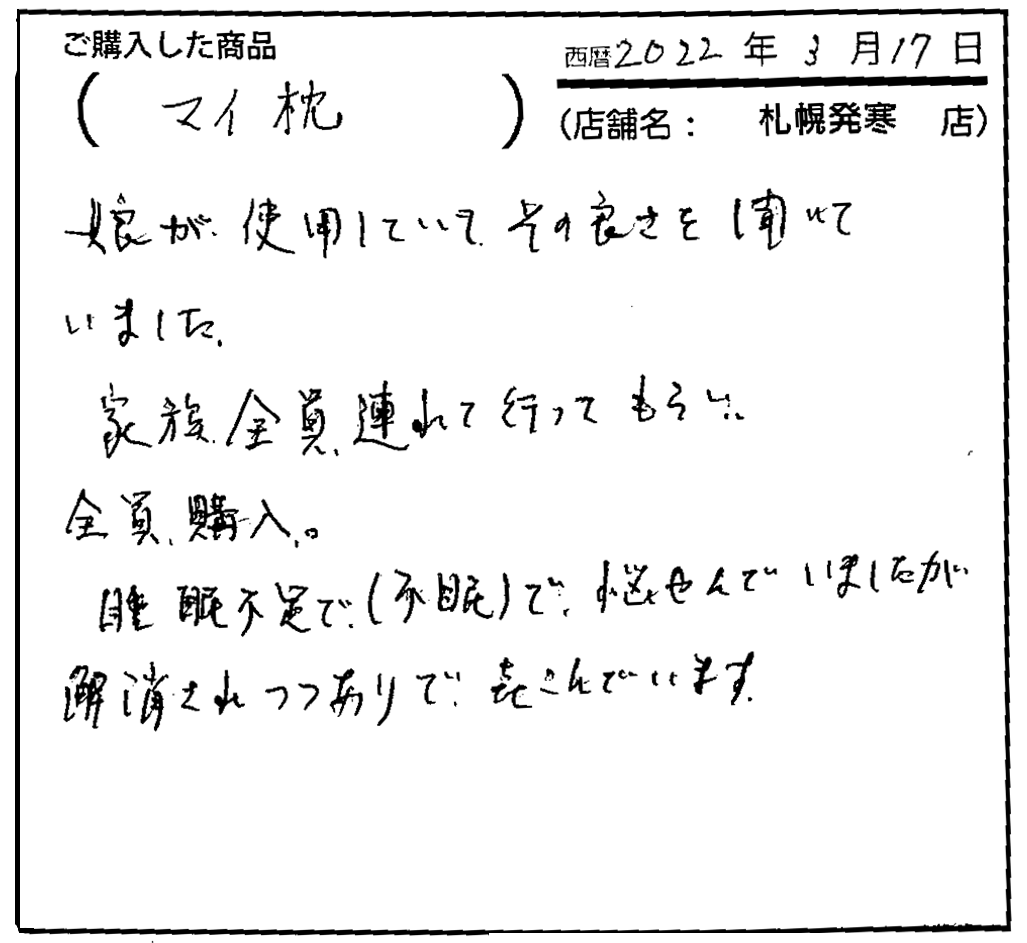 ご購入した商品
西暦2022年3月17日
(マイ枕)
(店舗名: 札幌発寒 店)
娘が使用していて、その良さを聞いて
いました。
家族全員、連れて行ってもらい、
全員、購入。
睡眠不足で、(不眠)で、悩せんでいましたが
解消されつつありで、喜こんでいます。